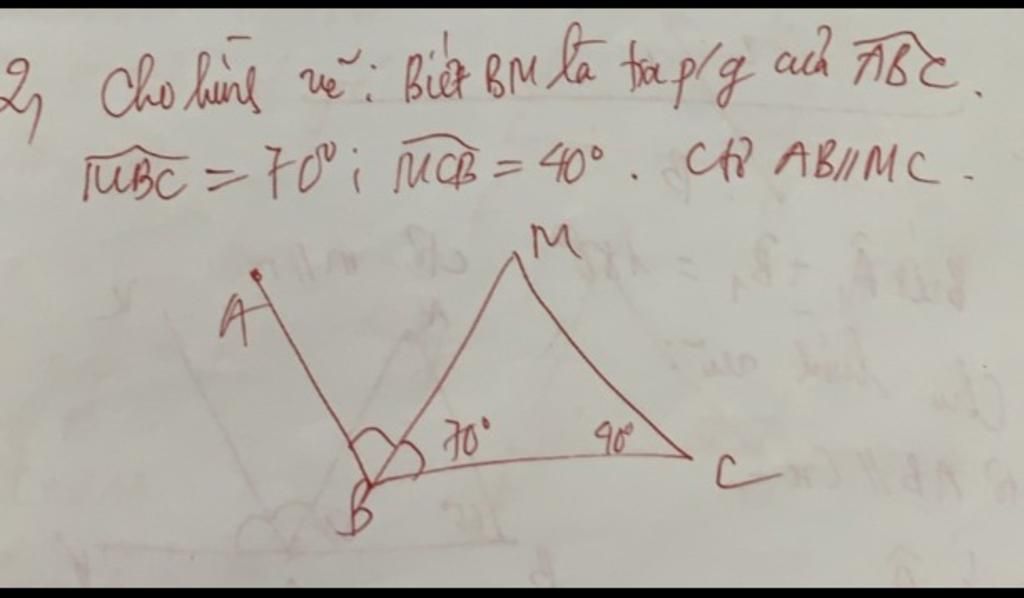 2, Cho hình vẽ: Biết BM là tia p/g của ABC.
MBC = 70°; MCB = 40°. CtỎ AB//MC.
M
A
70°
40°
B
C